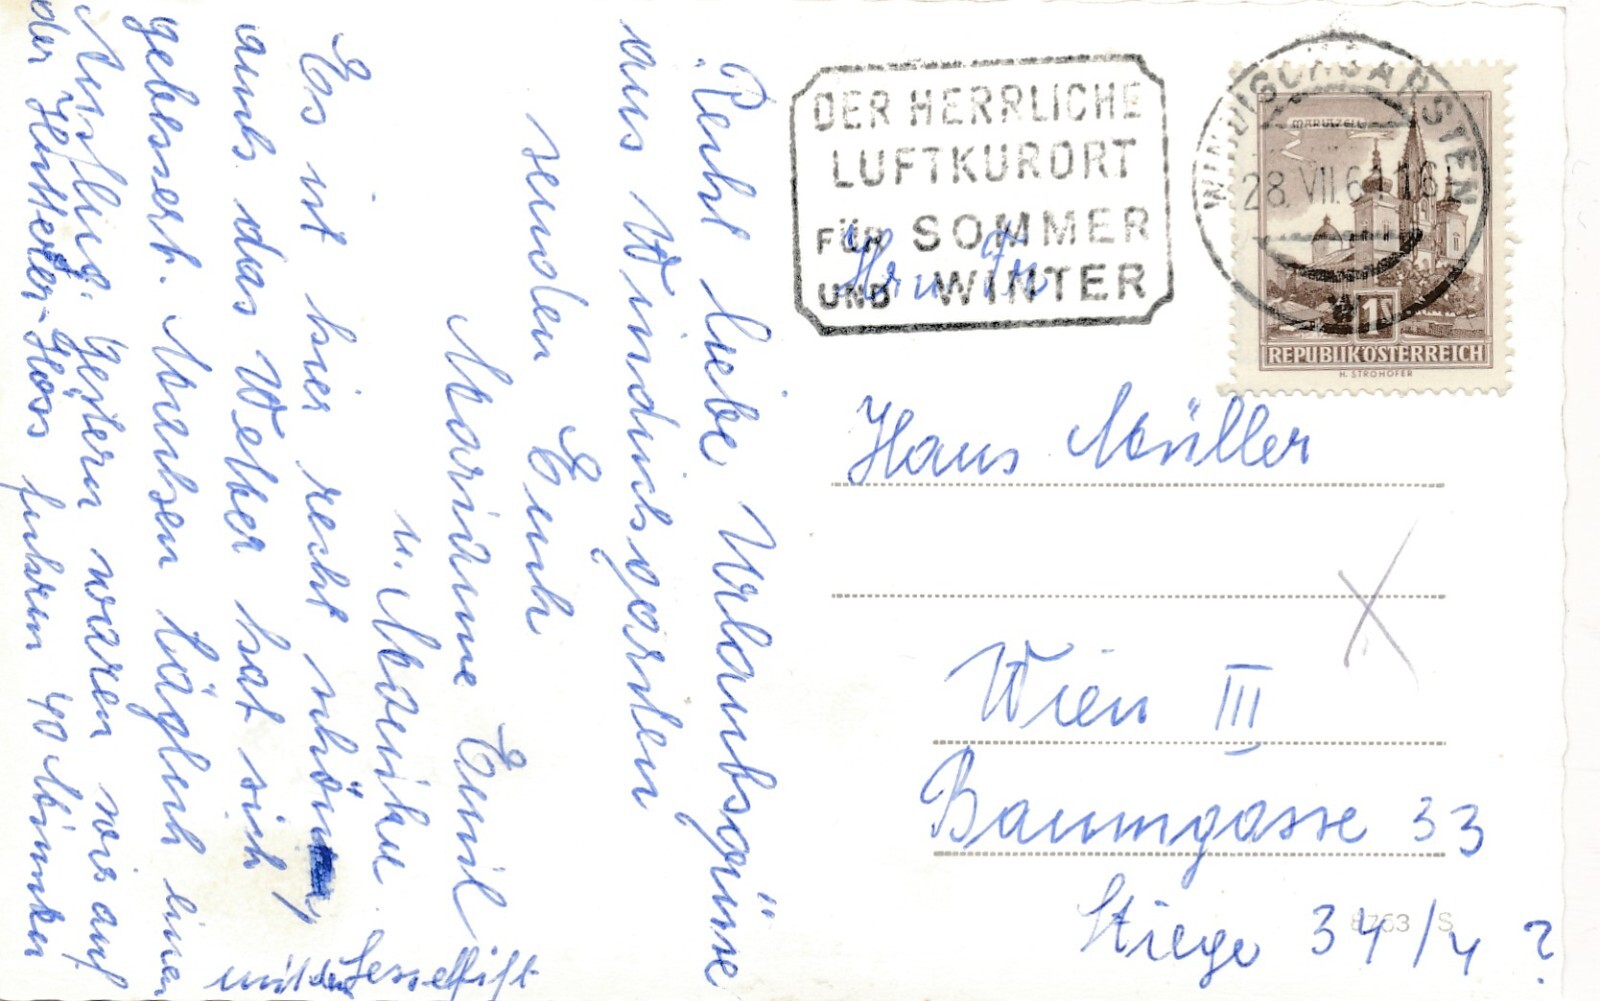 Recht liebe Urlaubsgrüsse
aus Windischgarsten
senden Euch
Marianne Emil
u.
Es ist hier recht schön,
auch das Wetter hat sich
gebessert. Machen täglich einen
Ausflug. Gestern waren wir auf
der Hutterer-Höss fuhren 40 Minuten
mit dem Sessellift
DER HERRLICHE
LUFTKURORT
FÜR SOMMER
UND WINTER
WINDISCHGARSTEN
28. VII. 6
a
MARIAZELL
1 S
REPUBLIK ÖSTERREICH
H. STROHOFER
Hans Müller
Wien III
Baumgasse 33
Stiege 34/4 ?
8753 S